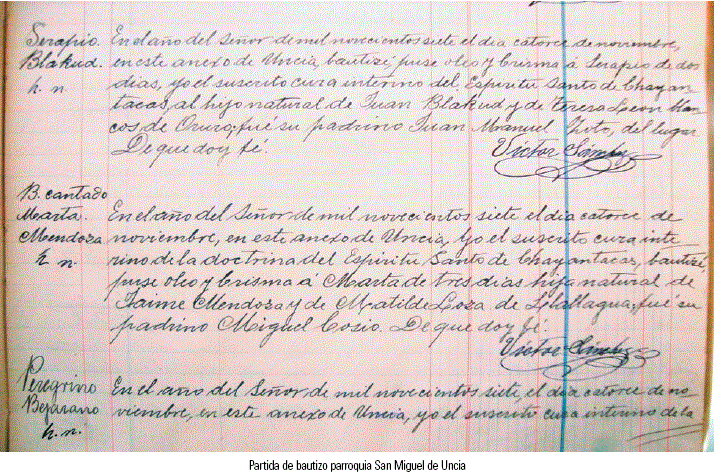 Serapio
Blakud.
h. n.
En el año del Señor de mil novecientos siete el dia catorce de noviembre,
en este anexo de Uncia, bautizé, puse oleo y Crisma á Serapio de dos
dias, yo el suscrito cura interino del Espiritu Santo de Chayan-
tacas, al hijo natural de Juan Blakud y de Teresa Leon blan-
cos de Oruro; fué su padrino Juan Manuel del lugar
De que doy fé
Victor
B. cantado
Marta
Mendoza
h. n.
En el año del Señor de mil novecientos siete el dia catorce de
noviembre, en este anexo de Uncia, Yo el suscrito cura inte-
rino de la doctrina del Espiritu Santo de Chayantacas, bautizé,
puse oleo y Crisma á Marta de tres dias hija natural de
Jaime Mendoza y de Matilde Loza de Llallagua; fué su
padrino Miguel Cosio. De que doy fé.
Victor
Peregrino
Bejarano
h. n.
En el año del Señor, de mil novecientos siete, el dia catorce de no-
viembre, en este anexo de Uncia, yo el suscrito cura interino de la
Partida de bautizo parroquia San Miguel de Uncia